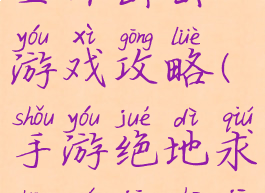 yóu xì gōng lüè
游戏攻略(
shǒu yóu jué dì qiú
手游绝地求